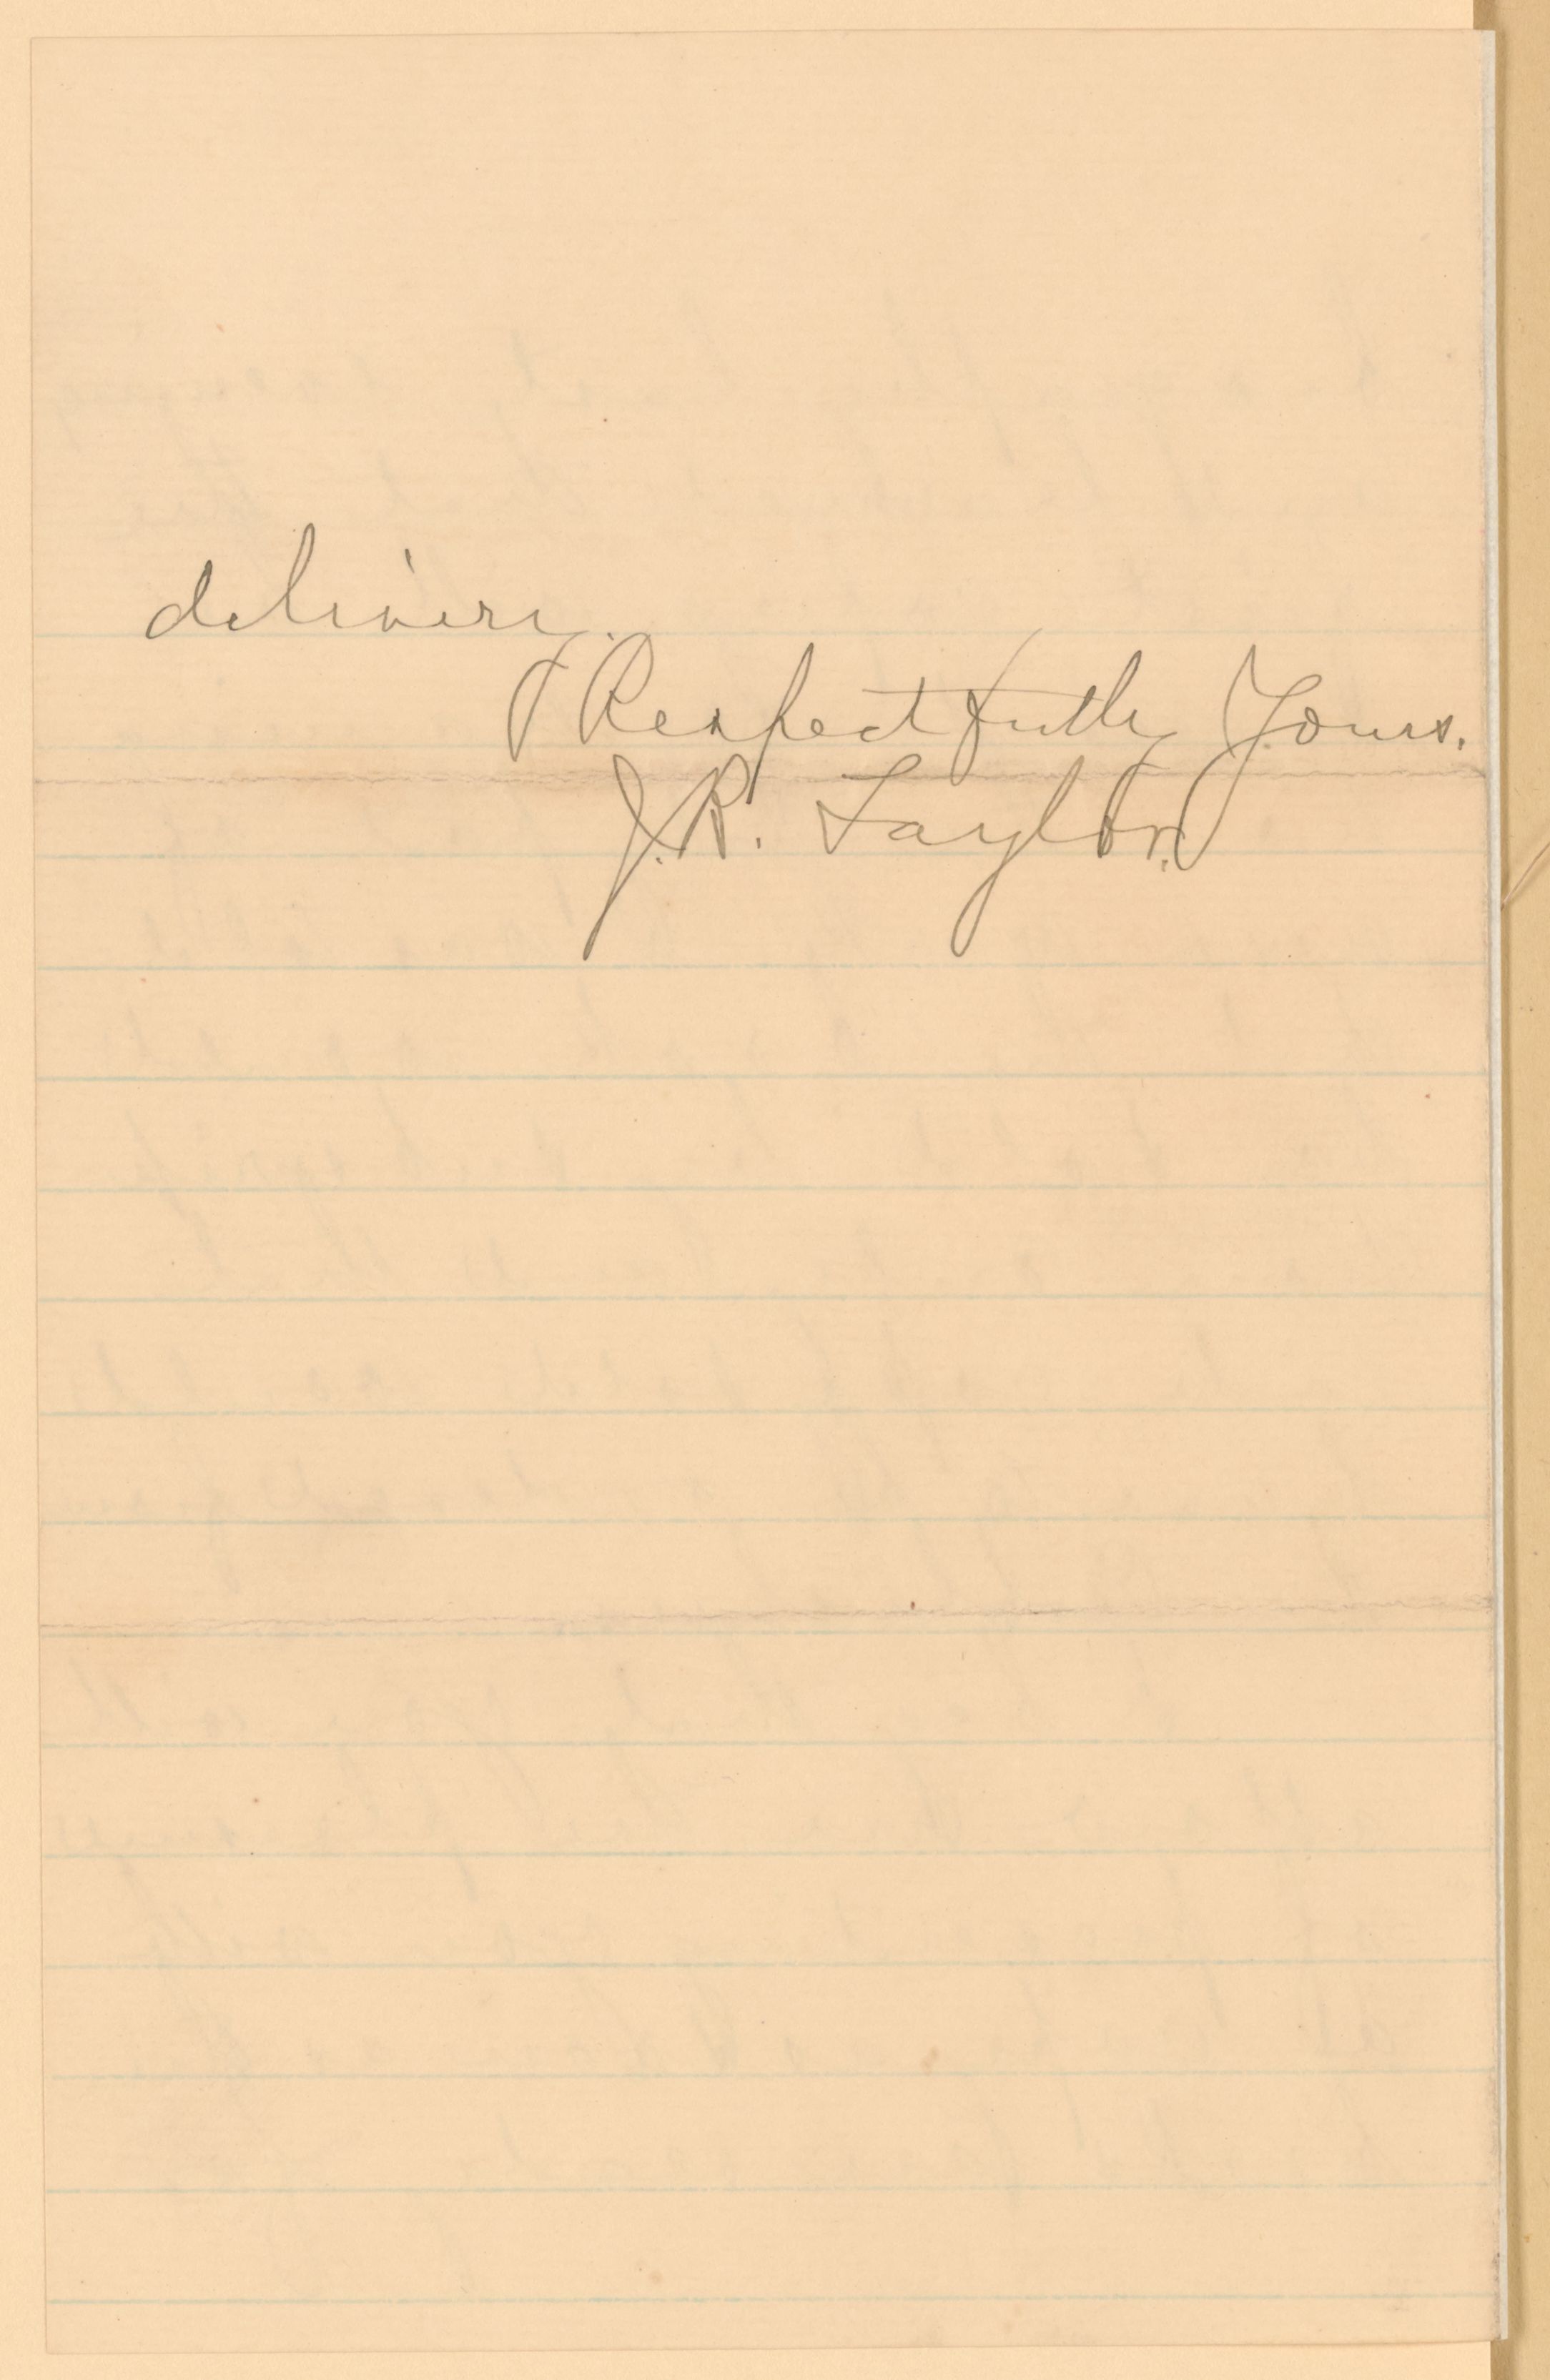 delivery.
Respectfully Yours.
J.R. Taylor.